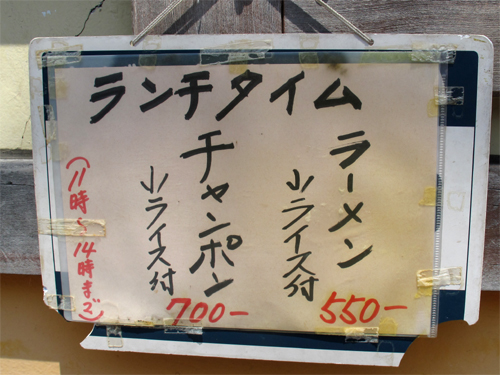 ランチタイム
ラーメン
小ライス付
550-
チャンポン
小ライス付
700-
(11時~14時まで)